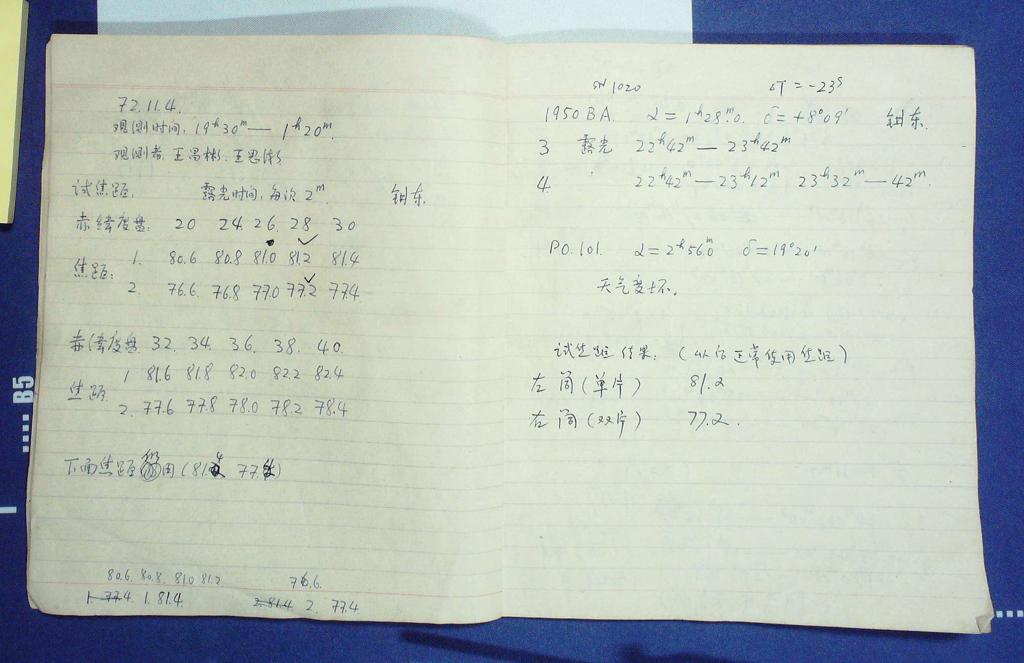 72.11.4.
观测时间: 19ʰ30ᵐ — 1ʰ20ᵐ.
观测者: 王昌彬. 王思潮
试焦距. 露光时间: 每次 2ᵐ 钼东.
赤纬度盘: 20 24. 26. 28 30
焦距: 1. 80.6 80.8 81.0 81.2 81.4
2. 76.6. 76.8 77.0 77.2 77.4
赤纬度盘 32. 34. 36. 38. 40.
焦距 1 81.6 81.8 82.0 82.2 82.4
2. 77.6 77.8 78.0 78.2 78.4
下面焦距 用 (81. 4 77. )
80.6. 80.8. 81.0 81.2 76.6.
1. 77.4. 1. 81.4. 2. 81.4 2. 77.4.
SN 1020 ΔT = -23ˢ
1950 BA. α = 1ʰ28ᵐ.0. δ = +8°09′ 钼东.
3 露光 22ʰ42ᵐ — 23ʰ42ᵐ
4. 22ʰ42ᵐ — 23ʰ12ᵐ 23ʰ32ᵐ — 42ᵐ.
PO.101. α = 2ʰ56ᵐ.0 δ = 19°20′
天气变坏.
试焦距结果: (以后正常使用焦距)
左筒 (单片) 81.2
右筒 (双片) 77.2.
B5